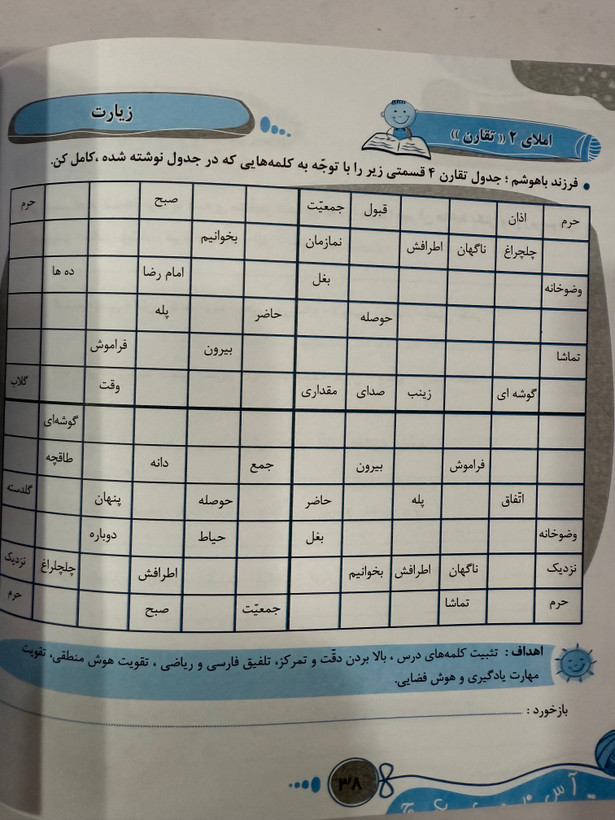 زیارت
املای ۲ «تقارن»
فرزند باهوشم ؛ جدول تقارن ۴ قسمتی زیر را با توجّه به کلمه‌هایی که در جدول نوشته شده ،کامل کن.
حرم اذان قبول جمعیّت صبح حرم
چلچراغ ناگهان اطرافش نمازمان بخوانیم
وضوخانه بغل امام رضا ده ها
حوصله حاضر پله
تماشا بیرون فراموش
گوشه ای زینب صدای مقداری وقت گلاب
گوشه‌ای
فراموش بیرون جمع دانه طاقچه
اتّفاق پله حاضر حوصله پنهان گلدسته
وضوخانه بغل حیاط دوباره
نزدیک ناگهان اطرافش بخوانیم اطرافش چلچلراغ نزدیک
حرم تماشا جمعیّت صبح حرم
اهداف : تثبیت کلمه‌های درس ، بالا بردن دقّت و تمرکز، تلفیق فارسی و ریاضی ، تقویت هوش منطقی، تقویت
مهارت یادگیری و هوش فضایی.
بازخورد :
۳۸